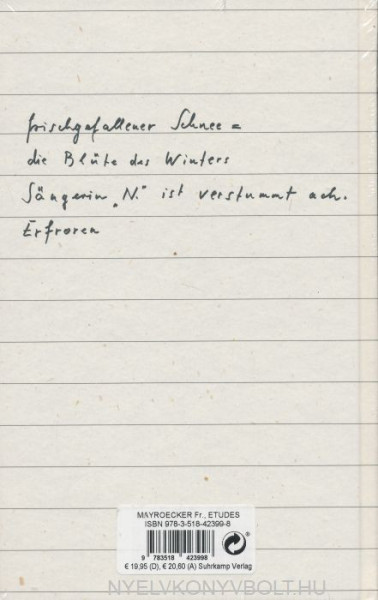 frischgefallener Schnee =
die Blüte des Winters
Sängerin „N.“ ist verstummt ach.
Erfroren
MAYROECKER Fr., ETUDES
ISBN 978-3-518-42399-8
9 783518 423998
€ 19,95 (D), € 20,60 (A) Suhrkamp Verlag
NYELVKONYVBOLT.HU